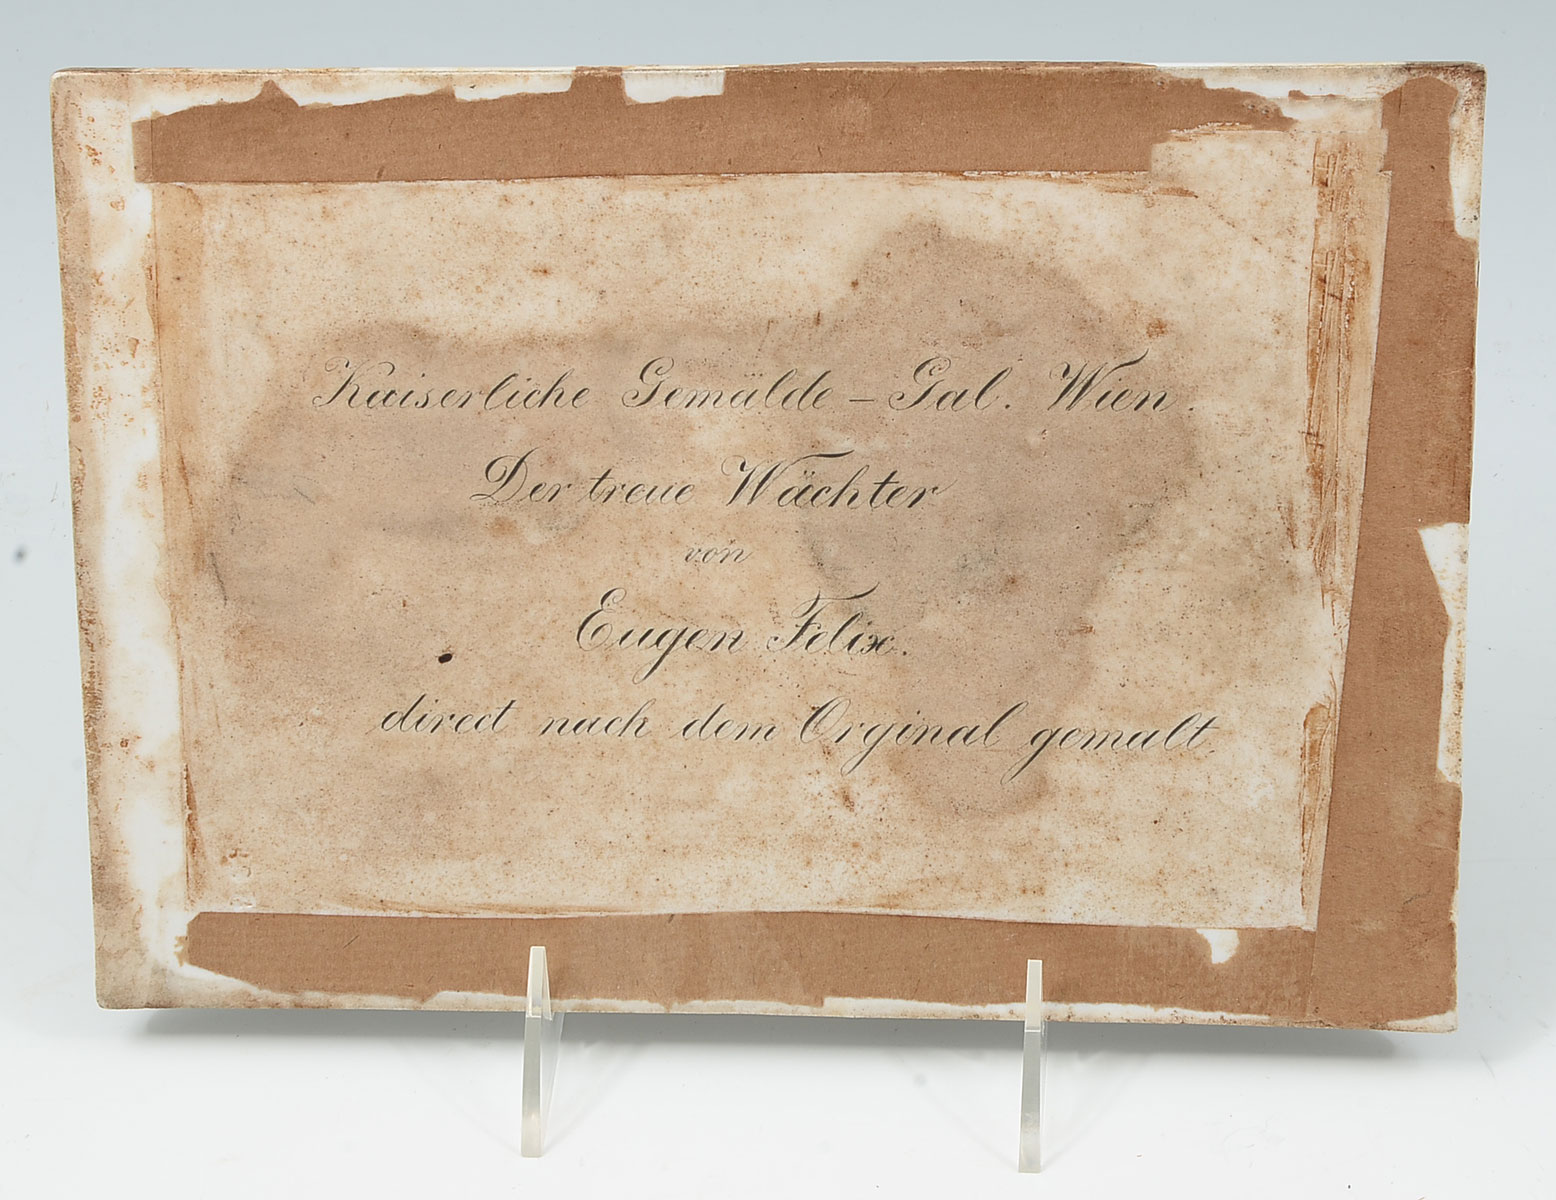 Kaiserliche Gemälde - Gal. Wien.
Der treue Wächter
von
Eugen Felix.
direct nach dem Orginal gemalt